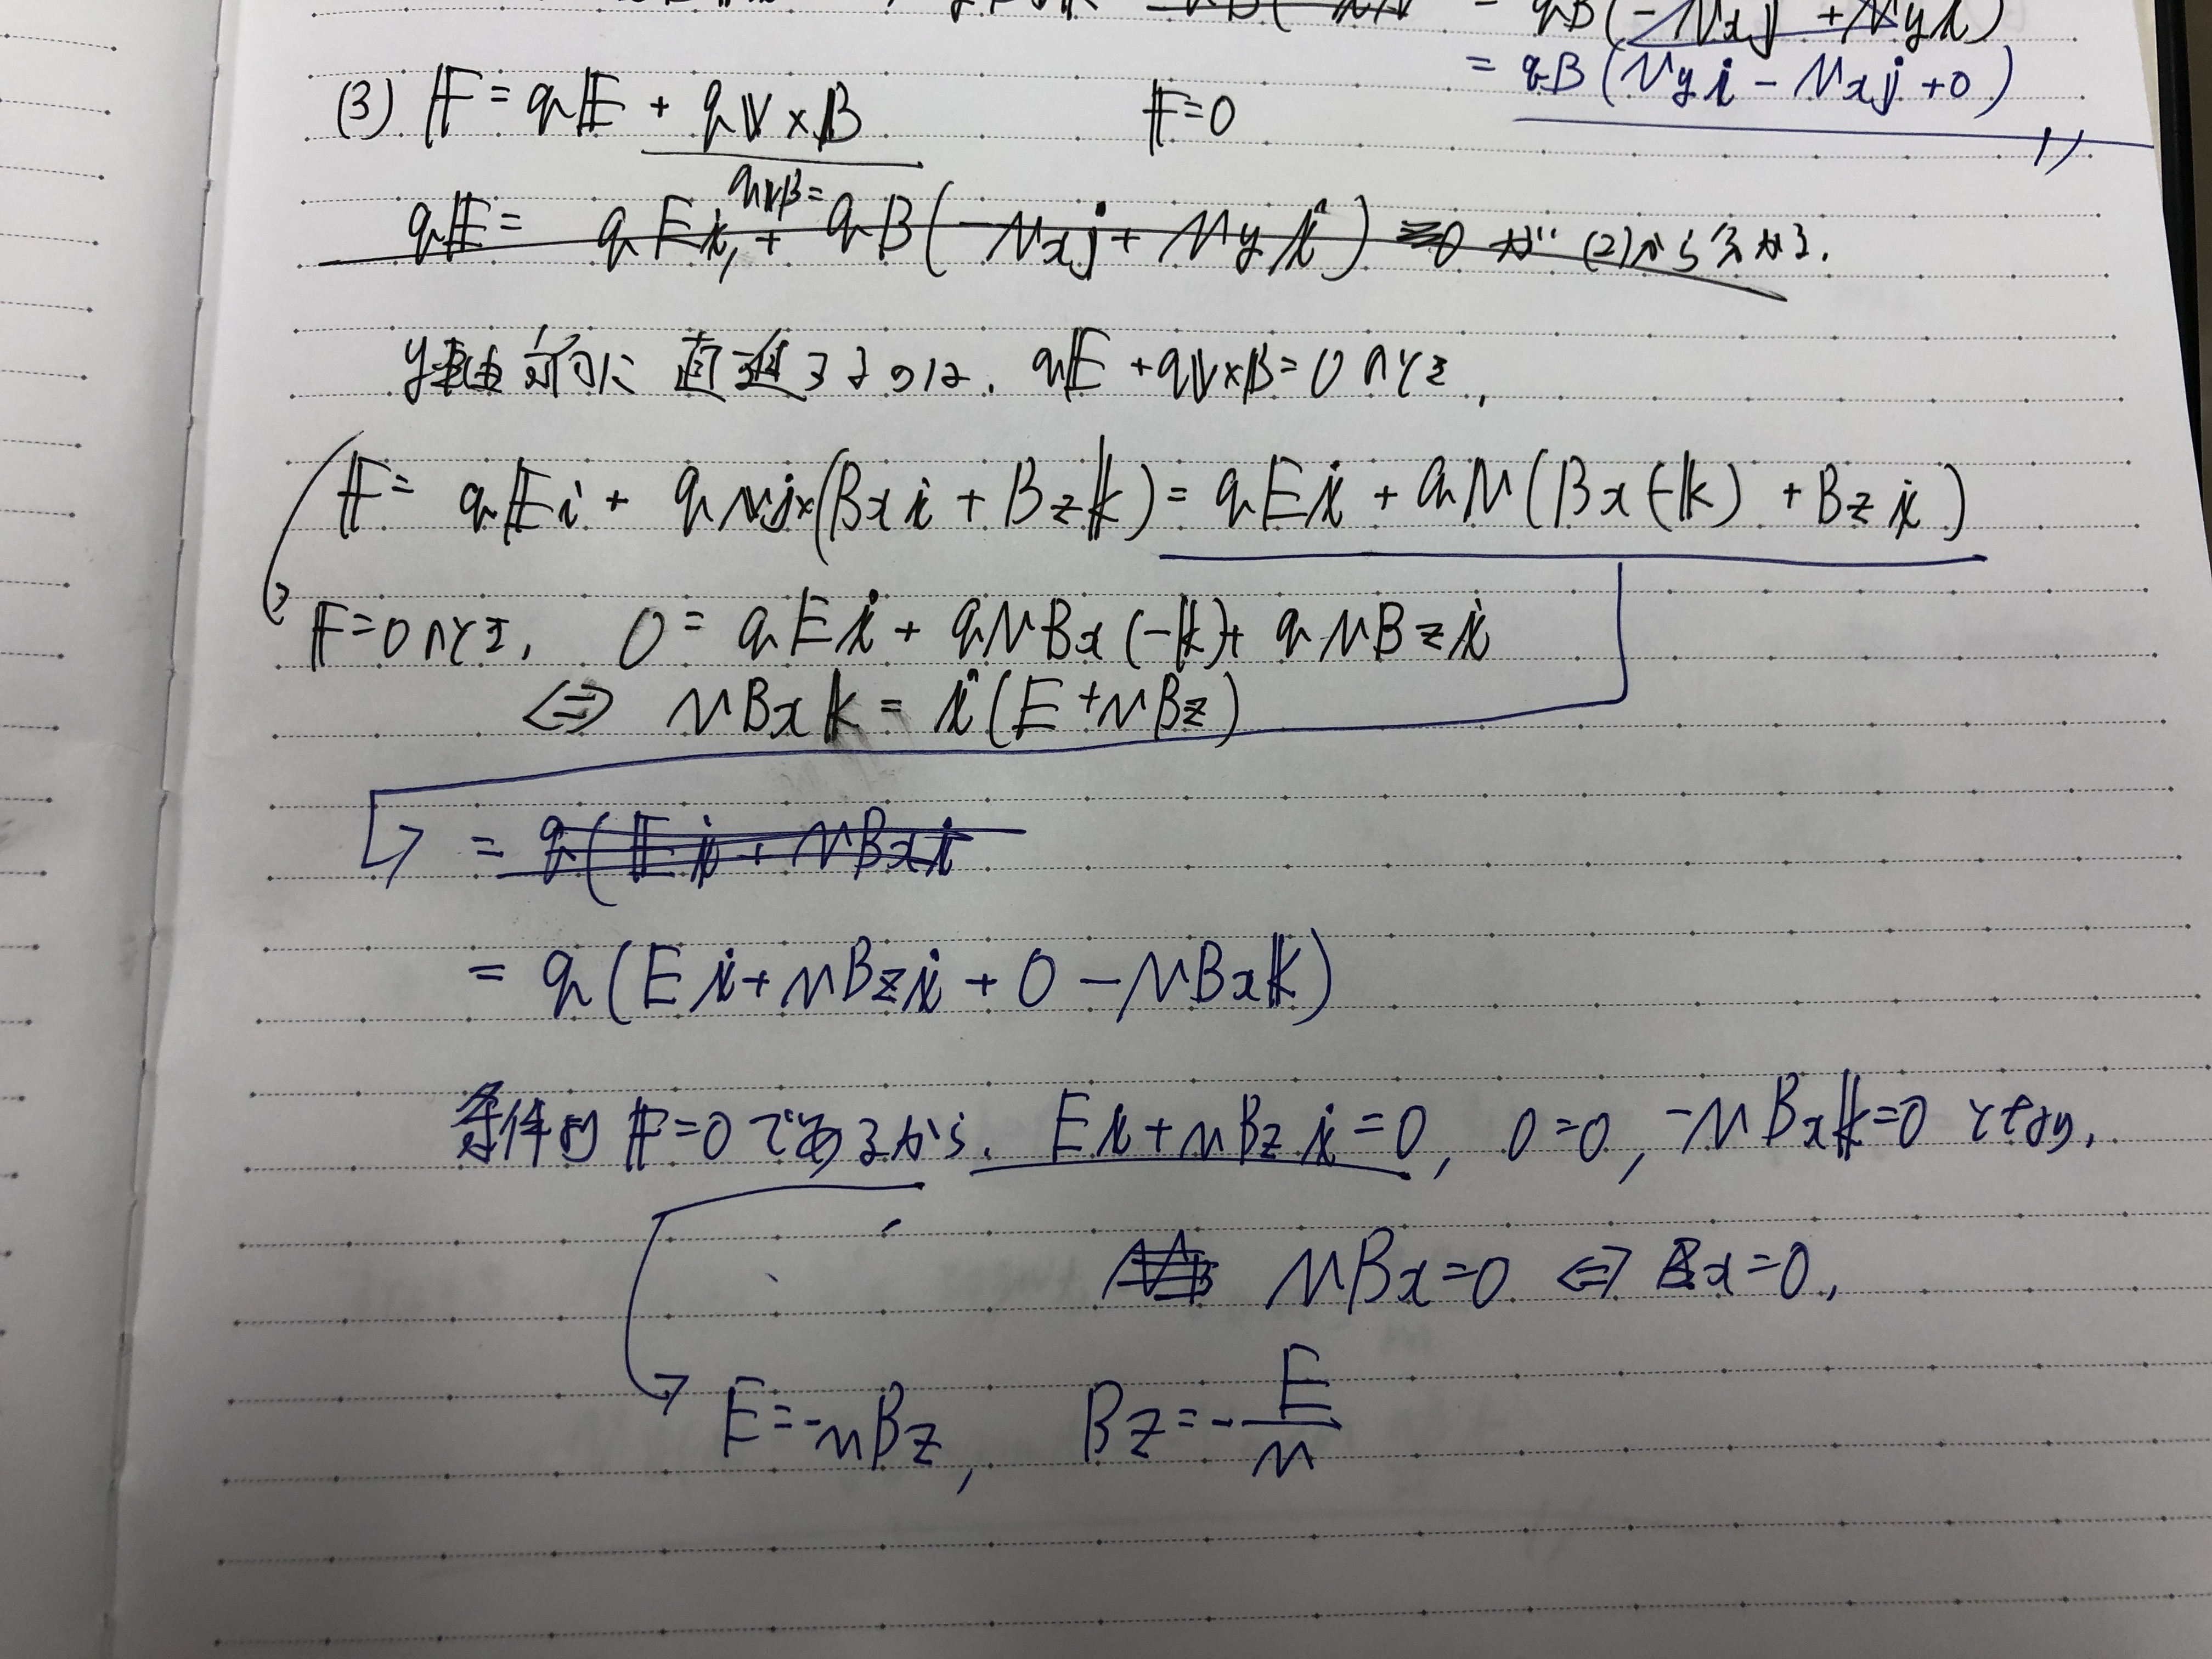 = qB(-Vxj + Vyi)
= qB(Vyi - Vxj + 0)
(3) F = qE + qV×B  F=0
qVB=
qE = qEi, + qB(-Vxj + Vyi) =0 が (2)から分かる.
y軸方向に直進するのは、qE + qV×B = 0 のとき,
F = qEi + qvj×(Bxi + Bzk) = qEi + qv(Bx(-k) + Bzi)
F=0のとき, 0 = qEi + qvBx(-k) + qvBzi
⇔ vBxk = i(E + vBz)
= q(Ei + vBxi
= q(Ei + vBzi + 0 - vBxk)
条件より F=0であるから、Ei + vBzi = 0, 0=0, -vBxk=0 となり,
vBx=0 ⇔ Bx=0,
E = -vBz, Bz = -E/v